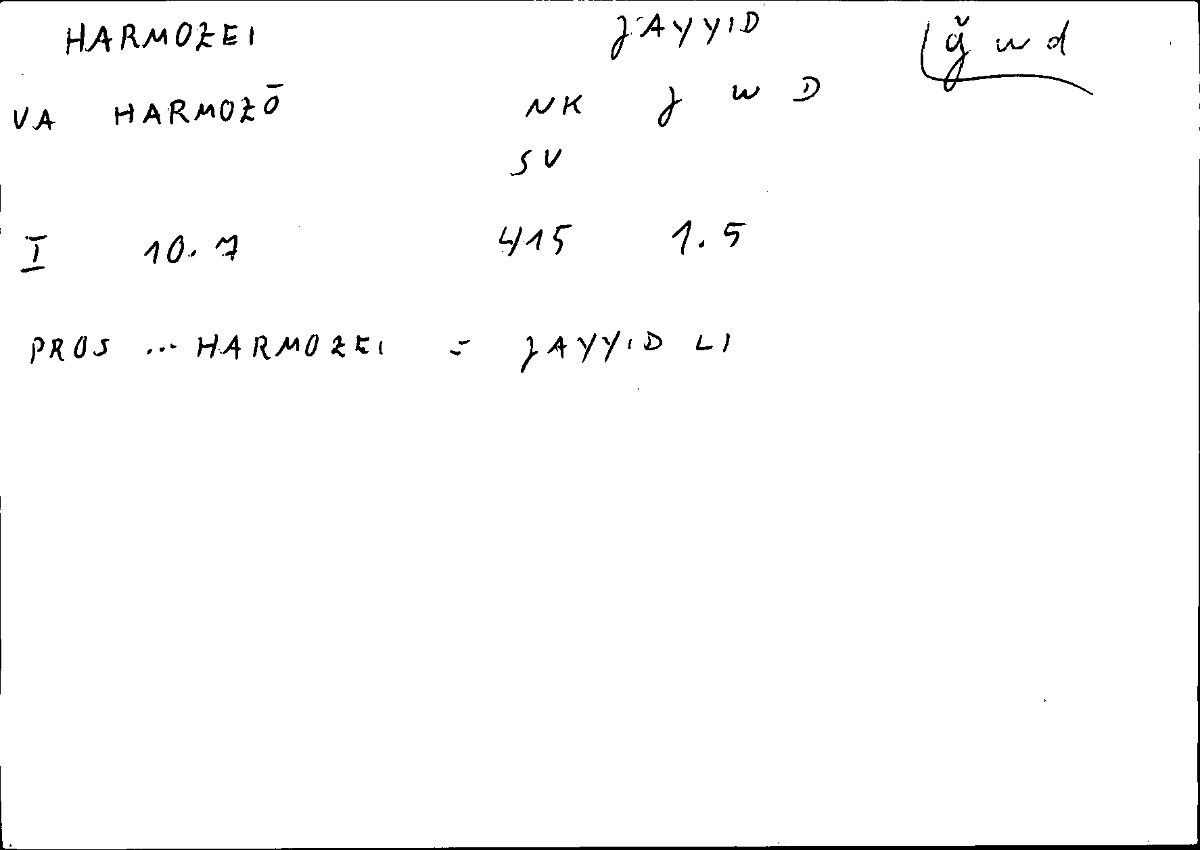 HARMOZEI JAYYID ǧwd
VA HARMOZŌ NK J W D
SV
I 10.7 415 1.5
PROS ... HARMOZEI = JAYYID LI